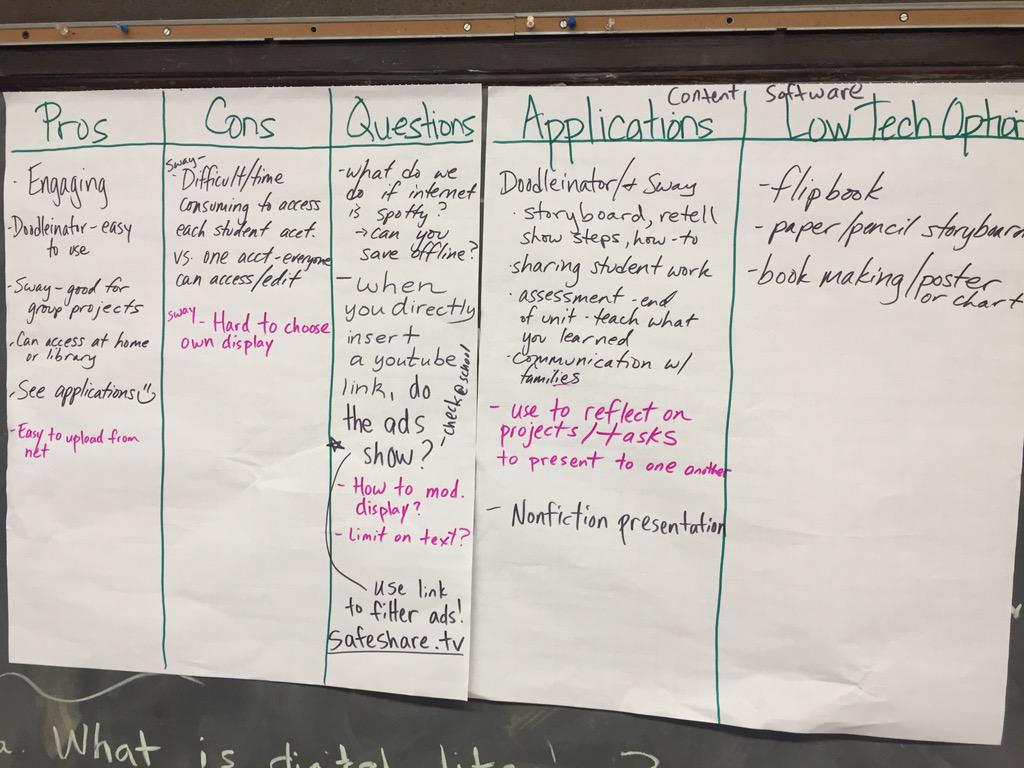 Pros
· Engaging
-Doodleinator-easy
to use
-Sway-good for
group projects
-Can access at home
or library
-See applications
-Easy to upload from
net
Cons
Sway-
Difficult/time
consuming to access
each student acct.
vs. one acct-everyone
can access/edit
Sway
-Hard to choose
own display
Questions
-What do we
do if internet
is spotty?
→can you
save offline?
-when
you directly
insert
a youtube
link, do
the ads
show?
-check@school
-How to mod.
display?
-Limit on text?
use link
to filter ads!
safeshare.tv
Content
Applications
Doodleinator/+ Sway
·storyboard, retell
show steps, how-to
·sharing student work
·assessment-end
of unit-teach what
you learned
·Communication w/
families
-use to reflect on
projects/tasks
to present to one another
-Nonfiction presentation
Software
Low Tech Option
-flipbook
-paper/pencil storyboard
-book making/poster
or chart
a. What is digital